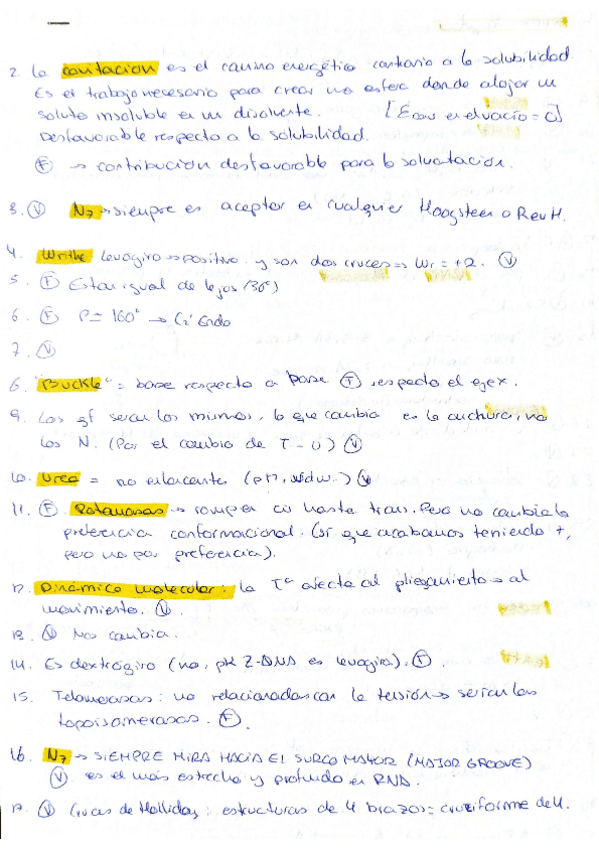 2. La cavitación es el camino energético contrario a la solubilidad
Es el trabajo necesario para crear una esfera donde alojar un
soluto insoluble en un disolvente. [Ecav en el vacío = 0]
Desfavorable respecto a la solubilidad.
(F) → contribución desfavorable para la solvatación.
3. (V) N7 → siempre es aceptor en cualquier Hoogsteen o RevH.
4. Writhe levógiro → positivo y son dos cruces → Wr = +2. (V)
5. (F) Están igual de lejos (36°)
6. (F) P = 160° → C2' Endo
7. (V)
8. "Buckle" = base respecto a base (F), respecto el eje x.
9. Los gf serían los mismos, lo que cambia es la anchura, no
los N. (Por el cambio de T → U) (V)
10. Urea = no enlazantes (pH, vdw..) (V)
11. (F). Rotamasas → romper cis hasta trans. Pero no cambia la
preferencia conformacional. (sí que acabamos teniendo +,
pero no por preferencia).
12. Dinámica molecular: la Tª afecta al plegamiento → al
movimiento. (V).
13. (V) No cambia.
14. Es dextrógiro (no, pk Z-DNA es levogira). (F).
15. Telomerasas: no relacionadas con la tensión → serían las
topoisomerasas. (F).
16. N7 → SIEMPRE MIRA HACIA EL SURCO MAYOR (MAJOR GROOVE)
(V) es el más estrecho y profundo en RNA.
17. (V) Cruces de Holliday: estructuras de 4 brazos = cruziforme de 4.